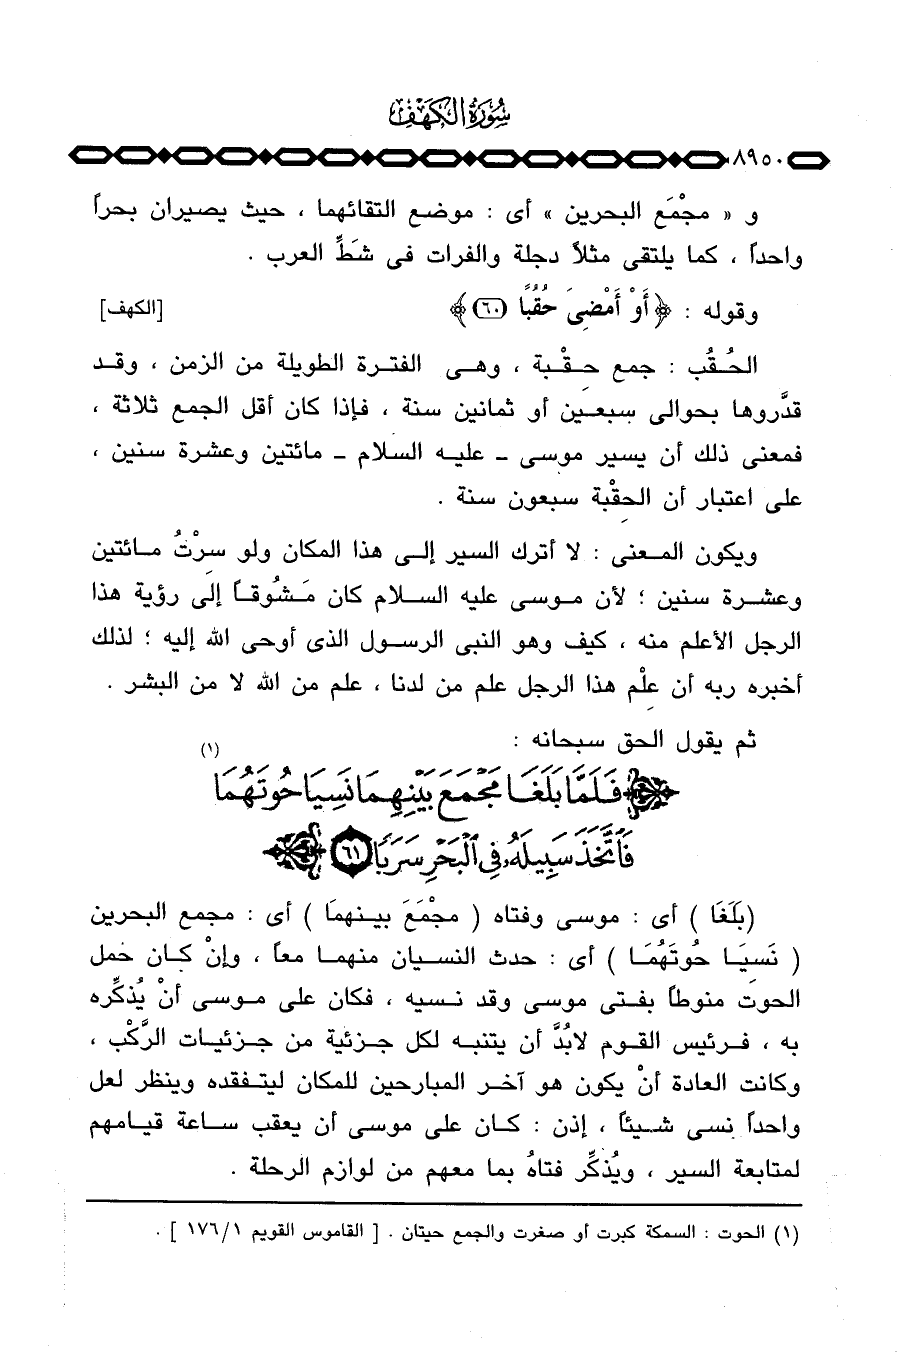 سُورَةُ الكَهْفِ
٨٩٥٠
و « مجْمَع البحرين » أى : موضع التقائهما ، حيث يصيران بحراً
واحداً ، كما يلتقى مثلاً دجلة والفرات فى شَطِّ العرب .
وقوله : ﴿أَوْ أَمْضِىَ حُقُبًا (٦٠)﴾ [الكهف]
الحُقُب : جمع حِقْبة ، وهى الفترة الطويلة من الزمن ، وقد
قدَّروها بحوالى سبعين أو ثمانين سنة ، فإذا كان أقل الجمع ثلاثة ،
فمعنى ذلك أن يسير موسى ـ عليه السلام ـ مائتين وعشرة سنين ،
على اعتبار أن الحِقْبة سبعون سنة .
ويكون المعنى : لا أترك السير إلى هذا المكان ولو سِرْتُ مائتين
وعشرة سنين ؛ لأن موسى عليه السلام كان مَشُوقاً إلى رؤية هذا
الرجل الأعلم منه ، كيف وهو النبى الرسول الذى أوحى الله إليه ؛ لذلك
أخبره ربه أن عِلْم هذا الرجل علم من لدنا ، علم من الله لا من البشر .
ثم يقول الحق سبحانه :
﴿فَلَمَّا بَلَغَا مَجْمَعَ بَيْنِهِمَا نَسِيَا حُوتَهُمَا (١)
فَٱتَّخَذَ سَبِيلَهُۥ فِى ٱلْبَحْرِ سَرَبًا ٦١﴾
(بَلَغَا ) أى : موسى وفتاه ( مجْمَعَ بينهِمَا ) أى : مجمع البحرين
( نَسِيَا حُوتَهُمَا ) أى : حدث النسيان منهما معاً ، وإنْ كان حَمل
الحوت منوطاً بفتى موسى وقد نسيه ، فكان على موسى أنْ يُذكِّره
به ، فرئيس القوم لابُدَّ أن يتنبه لكل جزئية من جزئيات الرَّكْب ،
وكانت العادة أنْ يكون هو آخر المبارحين للمكان ليتفقده وينظر لعل
واحداً نسى شيئاً ، إذن : كان على موسى أن يعقب ساعة قيامهم
لمتابعة السير ، ويُذكِّر فتاهُ بما معهم من لوازم الرحلة .
(١) الحوت : السمكة كبرت أو صغرت والجمع حيتان . [ القاموس القويم ١٧٦/١ ] .